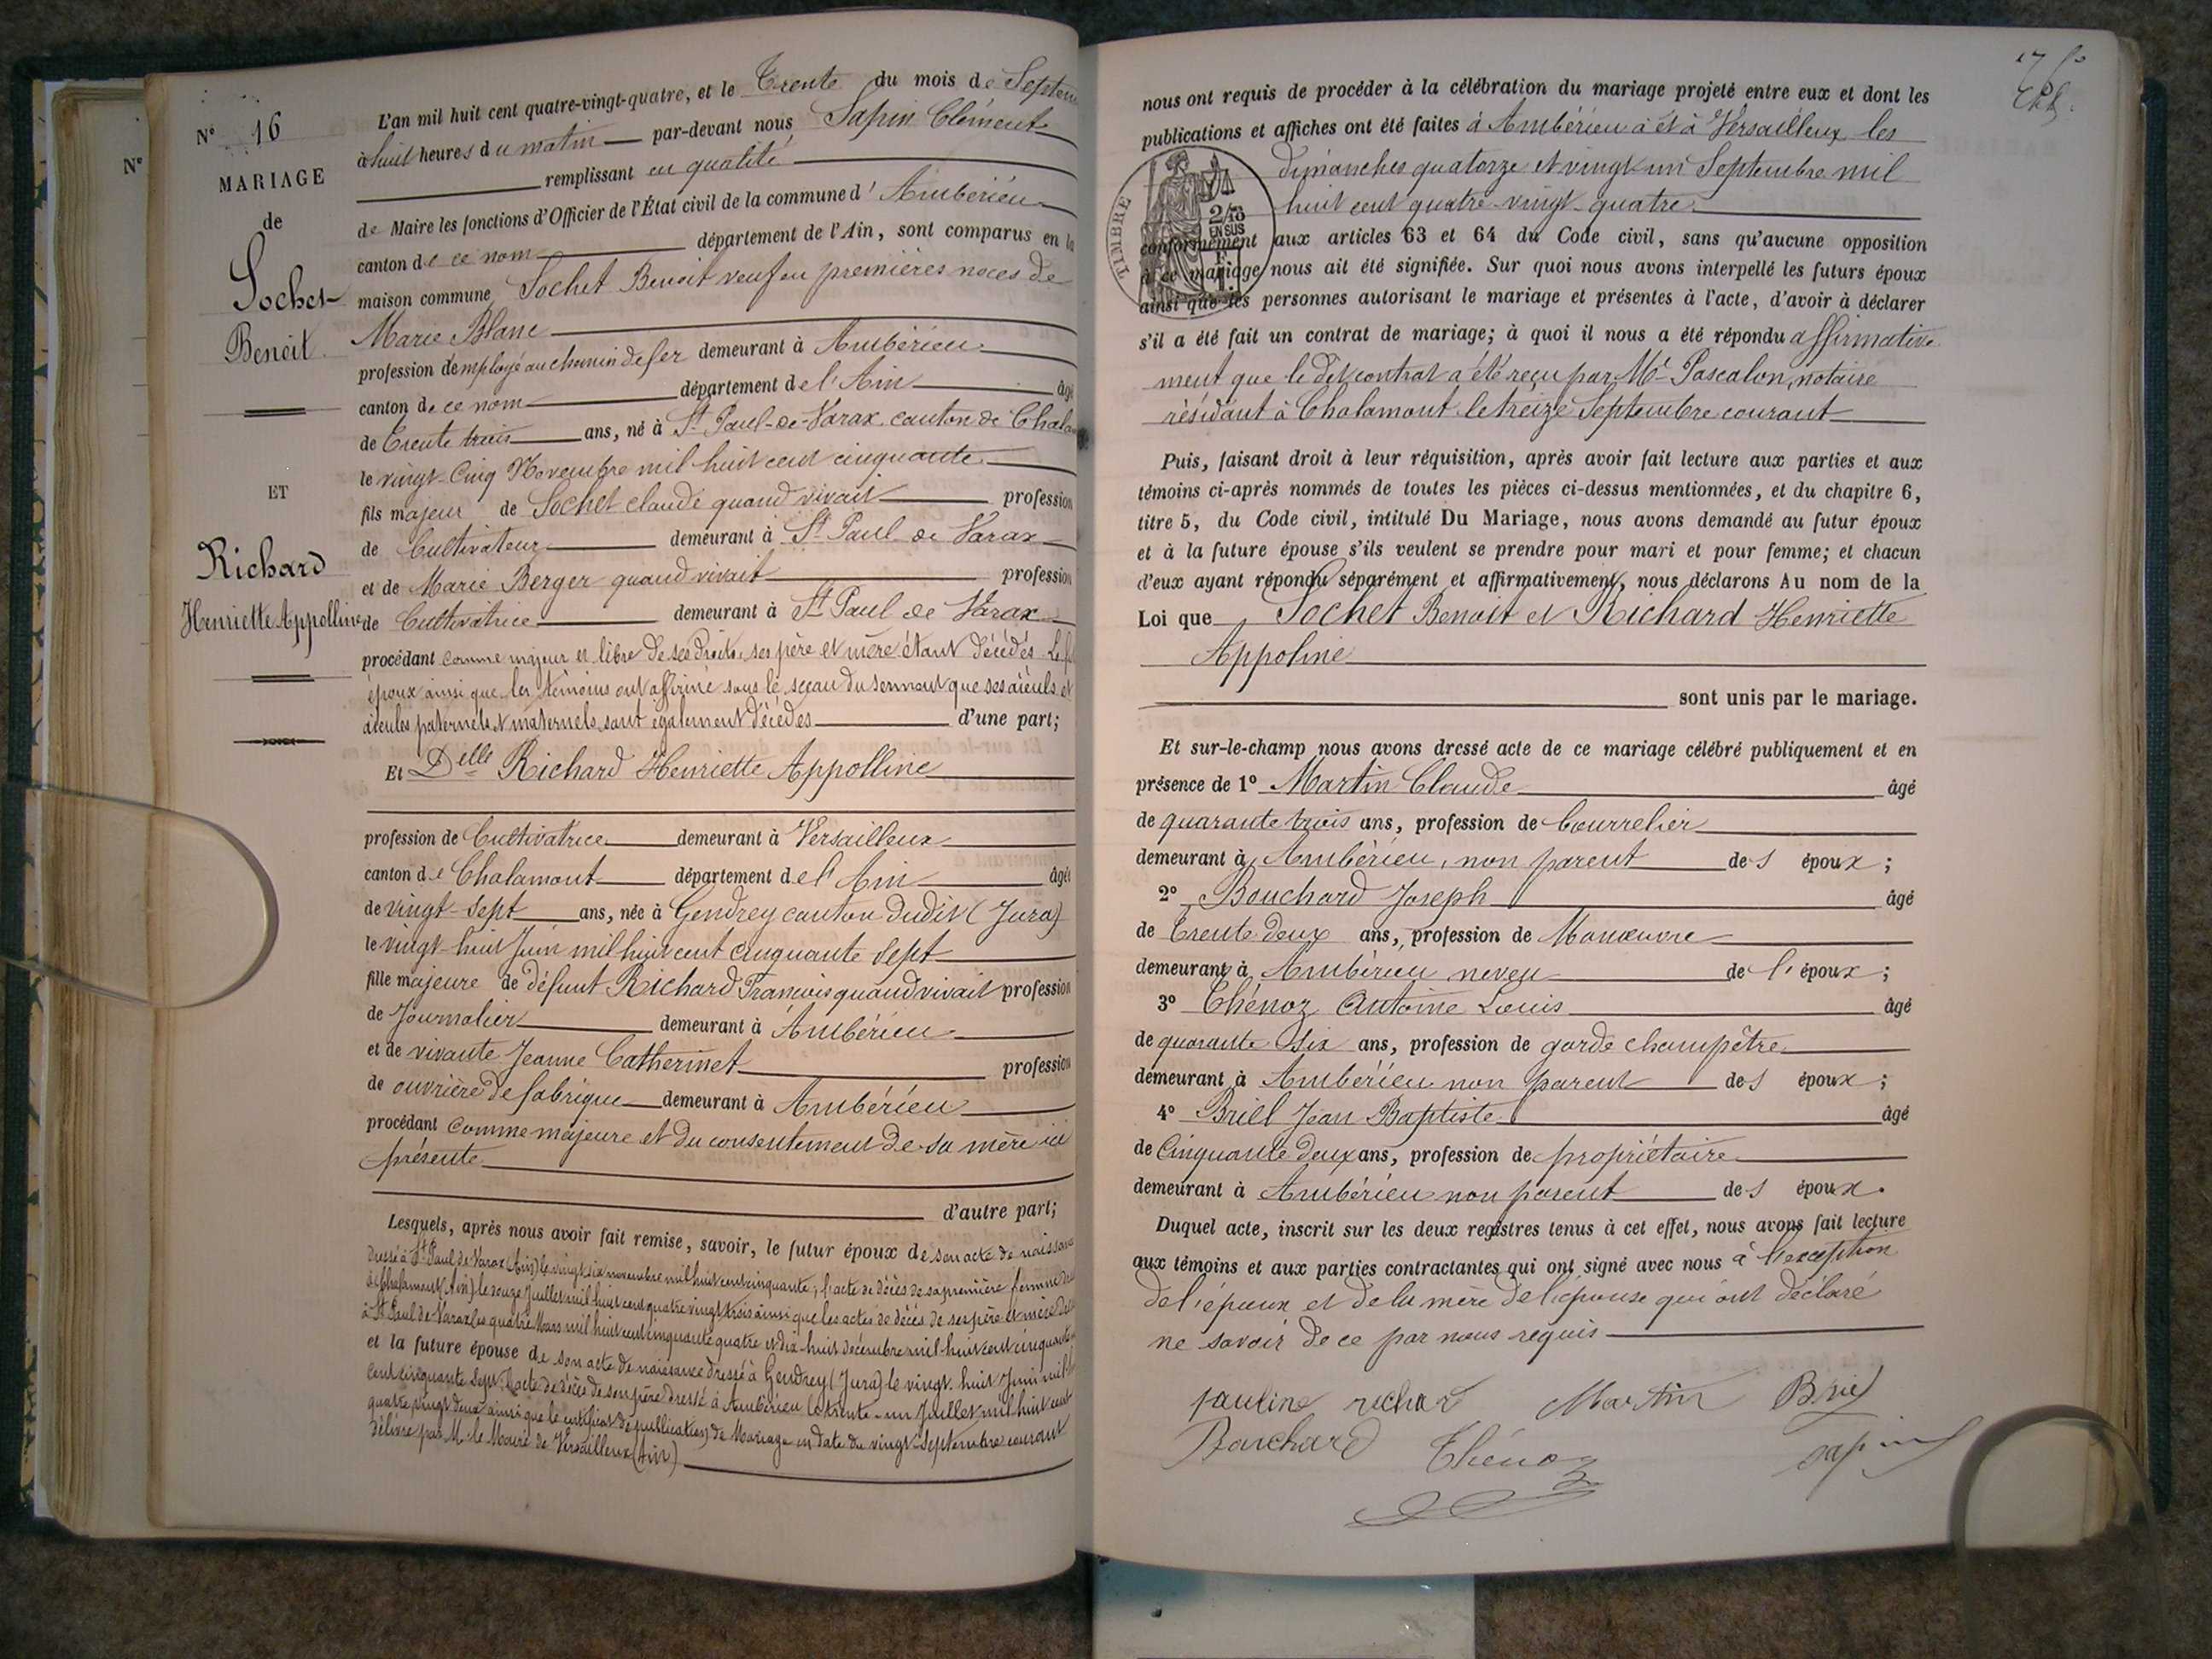 N°
N° 16
MARIAGE
de
Sochet
Benoit
ET
Richard
Henriette Appolline
L'an mil huit cent quatre-vingt-quatre, et le Trente du mois de Septem
à huit heures du matin par-devant nous Sapin Clément
remplissant en qualité
de Maire les fonctions d'Officier de l'État civil de la commune d' Ambérieu
canton de ce nom département de l'Ain, sont comparus en la
maison commune Sochet Benoit veuf en premières noces de
Marie Blanc
profession d'employé au chemin de fer demeurant à Ambérieu
canton de ce nom département de l'Ain âgé
de Trente trois ans, né à St Paul-de-Varax canton de Chala
le vingt-cinq Novembre mil huit cent cinquante
fils majeur de Sochet claude quand vivait profession
de Cultivateur demeurant à St Paul de Varax
et de Marie Berger quand vivait profession
de Cultivatrice demeurant à St Paul de Varax
procédant comme majeur et libre de ses droits, ses père et mère étant décédés. Le f
époux ainsi que les témoins ont affirmé sous le sceau du serment que ses aïeuls et
aïeules paternels et maternels sont également décédés d'une part;
Et Delle Richard Henriette Appolline
profession de Cultivatrice demeurant à Versailleux
canton de Chalamont département de l'Ain âgée
de vingt-sept ans, née à Gendrey canton dudit (Jura)
le vingt-huit Juin mil huit cent cinquante sept
fille majeure de défunt Richard François quand vivait profession
de Journalier demeurant à Ambérieu
et de vivante Jeanne Catherinet profession
de ouvrière de fabrique demeurant à Ambérieu
procédant comme majeure et du consentement de sa mère ici
présente
d'autre part;
Lesquels, après nous avoir fait remise, savoir, le futur époux de son acte de naissance
dressé à St Paul de Varax (Ain) le vingt six novembre mil huit cent cinquante, l'acte de décès de sa première femme
de Chalamont (Ain) le douze Juillet mil huit cent quatre vingt trois ainsi que les actes de décès de ses père et mère
à St Paul de Varax les quatre Mars mil huit cent cinquante quatre et dix-huit décembre mil huit cent cinquante
et la future épouse de son acte de naissance dressé à Gendrey (Jura) le vingt-huit Juin mil
cent cinquante sept, l'acte de décès de son père dressé à Ambérieu le trente-un Juillet mil huit cent
quatre vingt deux ainsi que le certificat de publication de Mariage en date du vingt Septembre courant
délivré par M. le Maire de Versailleux (Ain)
nous ont requis de procéder à la célébration du mariage projeté entre eux et dont les
publications et affiches ont été faites à Ambérieu à et à Versailleux les
dimanches quatorze et vingt-un Septembre mil
huit cent quatre-vingt-quatre
TIMBRE
2/10
EN SUS
conformément aux articles 63 et 64 du Code civil, sans qu'aucune opposition
à ce mariage nous ait été signifiée. Sur quoi nous avons interpellé les futurs époux
ainsi que les personnes autorisant le mariage et présentes à l'acte, d'avoir à déclarer
s'il a été fait un contrat de mariage; à quoi il nous a été répondu affirmative
ment que le dit contrat a été reçu par Me Pascalon, notaire
résidant à Chalamont le treize Septembre courant
Puis, faisant droit à leur réquisition, après avoir fait lecture aux parties et aux
témoins ci-après nommés de toutes les pièces ci-dessus mentionnées, et du chapitre 6,
titre 5, du Code civil, intitulé Du Mariage, nous avons demandé au futur époux
et à la future épouse s'ils veulent se prendre pour mari et pour femme; et chacun
d'eux ayant répondu séparément et affirmativement, nous déclarons Au nom de la
Loi que Sochet Benoit et Richard Henriette
Appoline
sont unis par le mariage.
Et sur-le-champ nous avons dressé acte de ce mariage célébré publiquement et en
présence de 1° Martin Claude âgé
de quarante trois ans, profession de Bourrelier
demeurant à Ambérieu, non parent des époux;
2° Bouchard Joseph âgé
de Trente deux ans, profession de Manœuvre
demeurant à Ambérieu neveu de l'époux;
3° Thénoz Antoine Louis âgé
de quarante six ans, profession de garde champêtre
demeurant à Ambérieu non parent des époux;
4° Briel Jean Baptiste âgé
de Cinquante deux ans, profession de propriétaire
demeurant à Ambérieu non parent des époux.
Duquel acte, inscrit sur les deux registres tenus à cet effet, nous avons fait lecture
aux témoins et aux parties contractantes qui ont signé avec nous à l'exception
de l'époux et de la mère de l'épouse qui ont déclaré
ne savoir de ce par nous requis
pauline richard Martin Briel
Bouchard Thénoz sapin